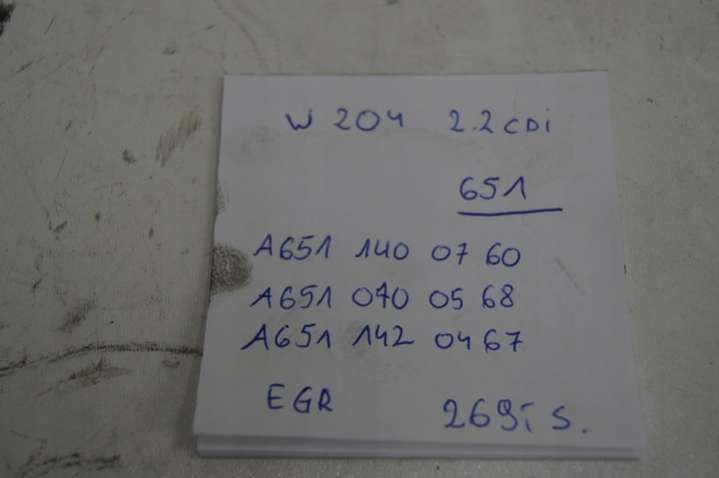 W 204 2.2 CDi
651
A651 140 07 60
A651 070 05 68
A651 142 04 67
EGR 269i S.